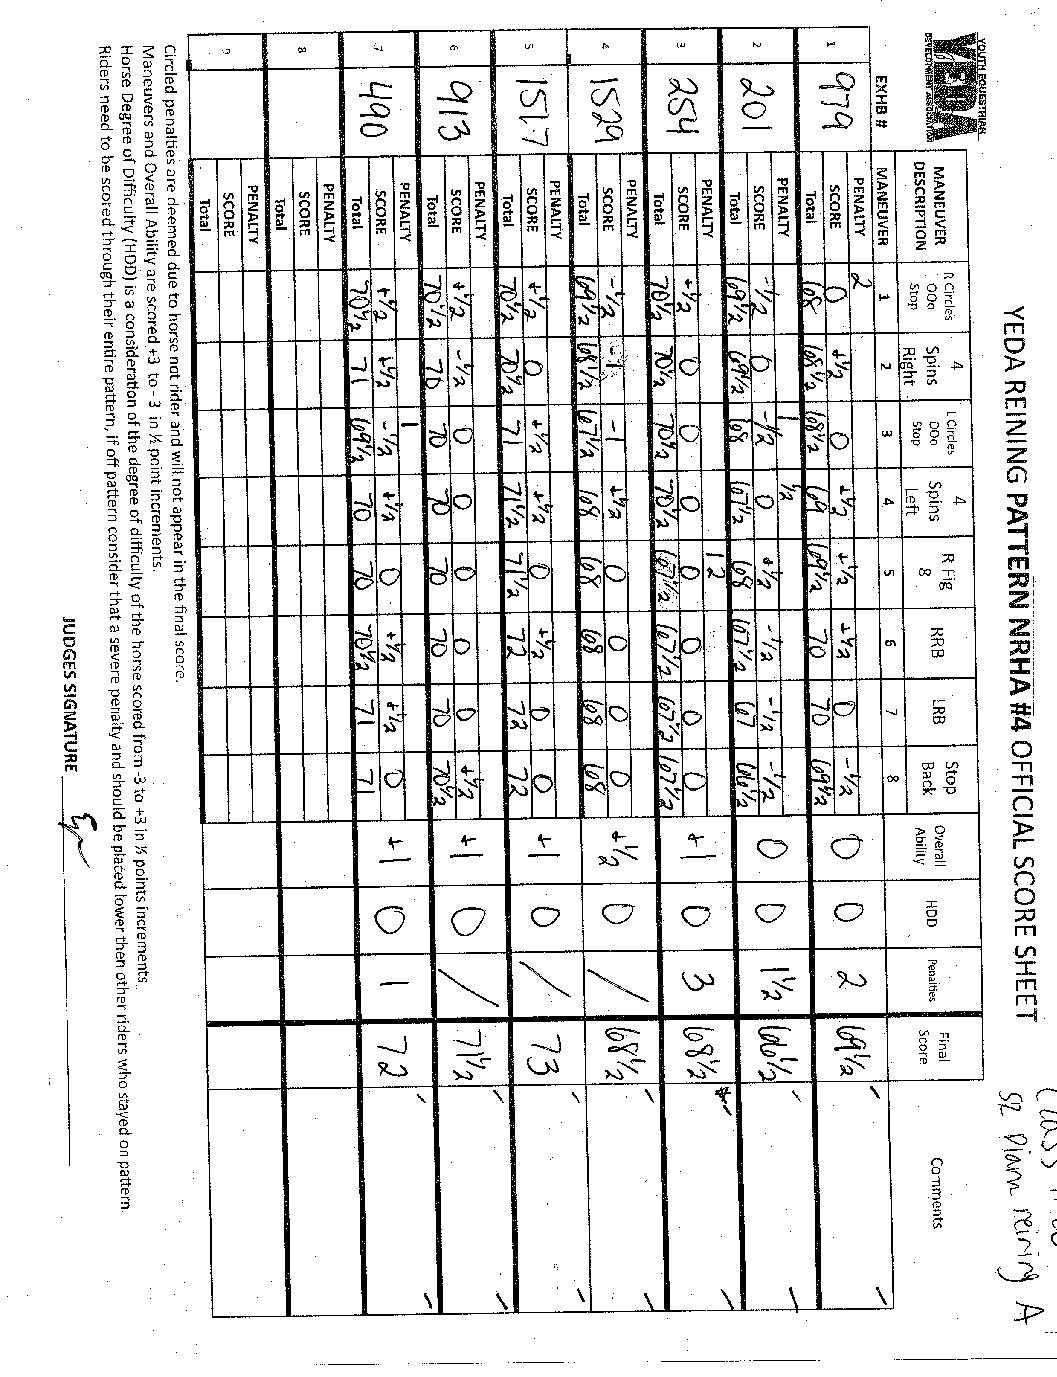 YOUTH EQUESTRIAN
YEDA
DEVELOPMENT ASSOCIATION
YEDA REINING PATTERN NRHA #4 OFFICIAL SCORE SHEET
S2 Diann reining A
EXHB # MANEUVER DESCRIPTION R Circles OOo Stop 4 Spins Right L Circles OOo Stop 4 Spins Left R Fig 8 RRB LRB Stop Back Overall Ability HDD Penalties Final Score Comments
MANEUVER 1 2 3 4 5 6 7 8
1 979 PENALTY 2
SCORE 0 +1/2 0 +1/2 +1/2 +1/2 0 -1/2 0 0 2 69 1/2
Total 68 68 1/2 68 1/2 69 69 1/2 70 70 69 1/2
2 201 PENALTY 1 1/2
SCORE -1/2 0 -1/2 0 +1/2 -1/2 -1/2 -1/2 0 0 1 1/2 66 1/2
Total 69 1/2 69 1/2 68 67 1/2 68 67 1/2 67 66 1/2
3 254 PENALTY 12
SCORE +1/2 0 0 0 0 0 0 0 +1 0 3 68 1/2
Total 70 1/2 70 1/2 70 1/2 70 1/2 67 1/2 67 1/2 67 1/2 67 1/2
4 1529 PENALTY
SCORE -1/2 -1 -1 +1/2 0 0 0 0 +1/2 0 / 68 1/2
Total 69 1/2 68 1/2 67 1/2 68 68 68 68 68
5 1517 PENALTY
SCORE +1/2 0 +1/2 +1/2 0 +1/2 0 0 +1 0 / 73
Total 70 1/2 70 1/2 71 71 1/2 71 1/2 72 72 72
6 913 PENALTY
SCORE +1/2 -1/2 0 0 0 0 0 +1/2 +1 0 / 71 1/2
Total 70 1/2 70 70 70 70 70 70 70 1/2
7 490 PENALTY 1
SCORE +1/2 +1/2 -1/2 +1/2 0 +1/2 +1/2 0 +1 0 1 72
Total 70 1/2 71 69 1/2 70 70 70 1/2 71 71
8 PENALTY
SCORE
Total
9 PENALTY
SCORE
Total
Circled penalties are deemed due to horse not rider and will not appear in the final score.
Maneuvers and Overall Ability are scored +3 to - 3 in ½ point increments.
Horse Degree of Difficulty (HDD) is a consideration of the degree of difficulty of the horse scored from -3 to +3 in ½ points increments.
Riders need to be scored through their entire pattern, if off pattern consider that a severe penalty and should be placed lower then other riders who stayed on pattern.
JUDGES SIGNATURE